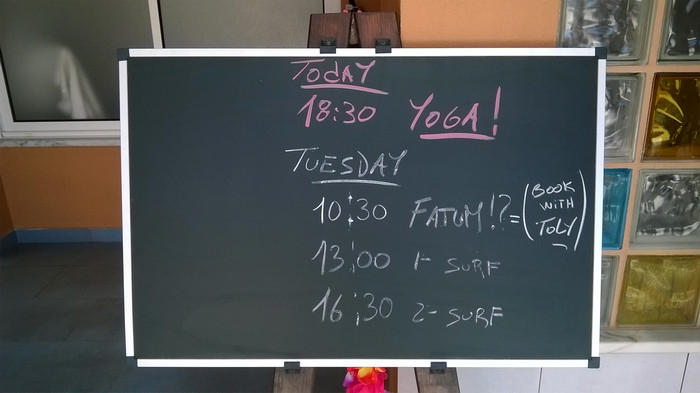 TodAY
18:30 YOGA!
TUESDAY
10:30 FATUM!? = (BOOK WITH TOLY)
13:00 1- SURF
16:30 2- SURF